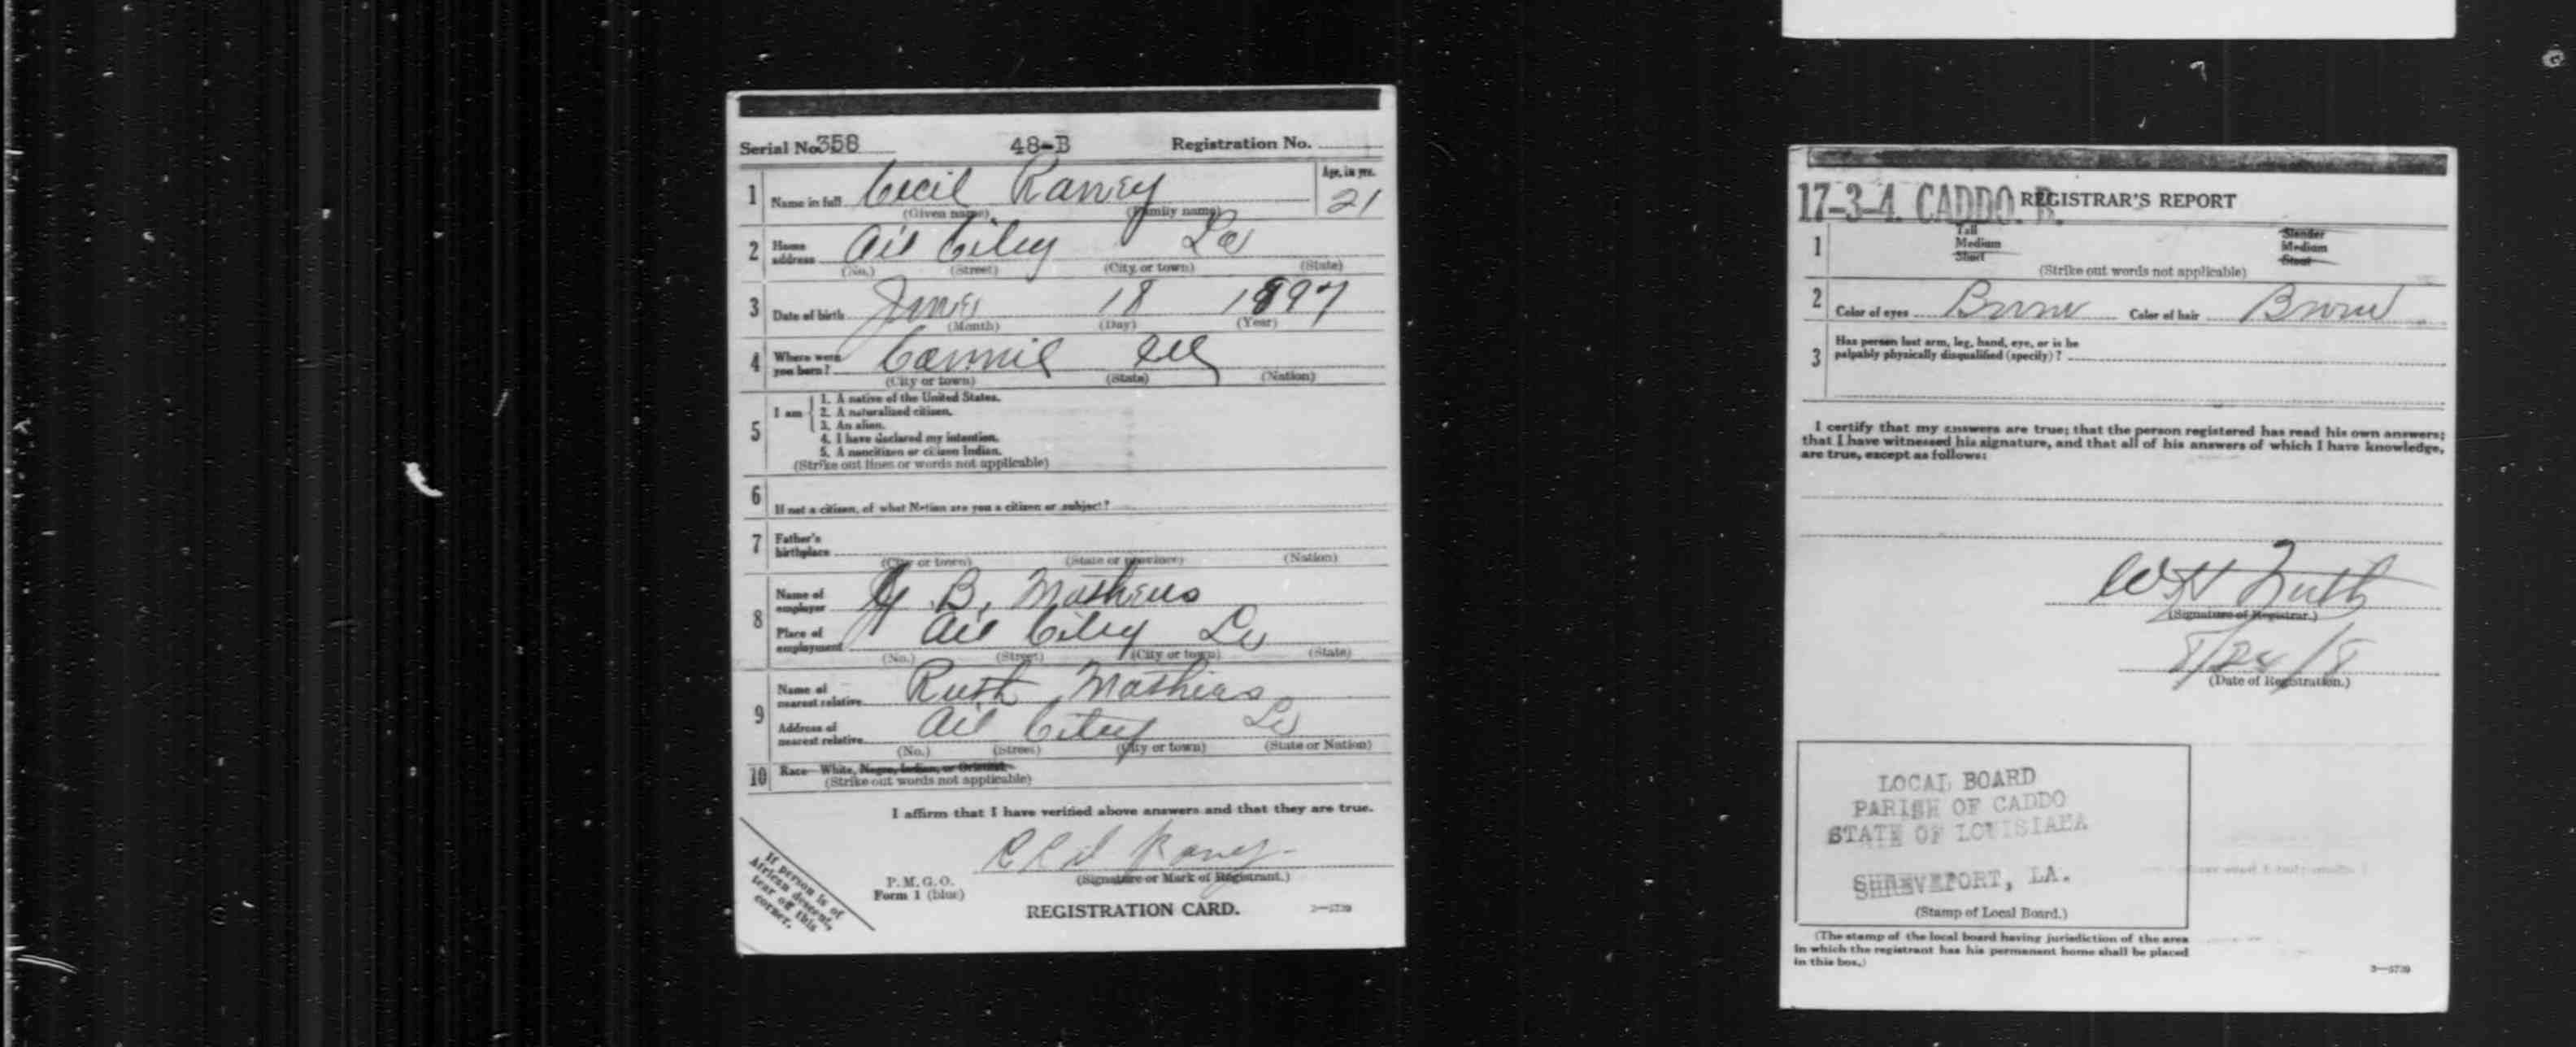 Serial No. 358 48-B Registration No.
1 Name in full Cecil Raney Age, in yrs. 21
(Given name) (Family name)
2 Home address Oil City La
(No.) (Street) (City or town) (State)
3 Date of birth June 18 1897
(Month) (Day) (Year)
4 Where were you born? Carmie Ill
(City or town) (State) (Nation)
5 I am
1. A native of the United States.
2. A naturalized citizen.
3. An alien.
4. I have declared my intention.
5. A noncitizen or citizen Indian.
(Strike out lines or words not applicable)
6 If not a citizen, of what Nation are you a citizen or subject?
7 Father's birthplace
(City or town) (State or province) (Nation)
8 Name of employer B. Mathews
Place of employment Oil City La
(No.) (Street) (City or town) (State)
9 Name of nearest relative Ruth Mathews
Address of nearest relative Oil City La
(No.) (Street) (City or town) (State or Nation)
10 Race—White, Negro, Indian, or Oriental.
(Strike out words not applicable)
I affirm that I have verified above answers and that they are true.
Cecil Raney
(Signature or Mark of Registrant.)
P. M. G. O.
Form 1 (blue)
REGISTRATION CARD. 3—5739
If person is of
African descent,
tear off this
corner.
17-3-4. CADDO. R. REGISTRAR'S REPORT
1 Tall Slender
Medium Medium
Short Stout
(Strike out words not applicable)
2 Color of eyes Brown Color of hair Brown
3 Has person lost arm, leg, hand, eye, or is he
palpably physically disqualified (specify)?
I certify that my answers are true; that the person registered has read his own answers;
that I have witnessed his signature, and that all of his answers of which I have knowledge,
are true, except as follows:
(Signature of Registrar.)
8/24/18
(Date of Registration.)
LOCAL BOARD
PARISH OF CADDO
STATE OF LOUISIANA
SHREVEPORT, LA.
(Stamp of Local Board.)
(The stamp of the local board having jurisdiction of the area
in which the registrant has his permanent home shall be placed
in this box.)
3—5739